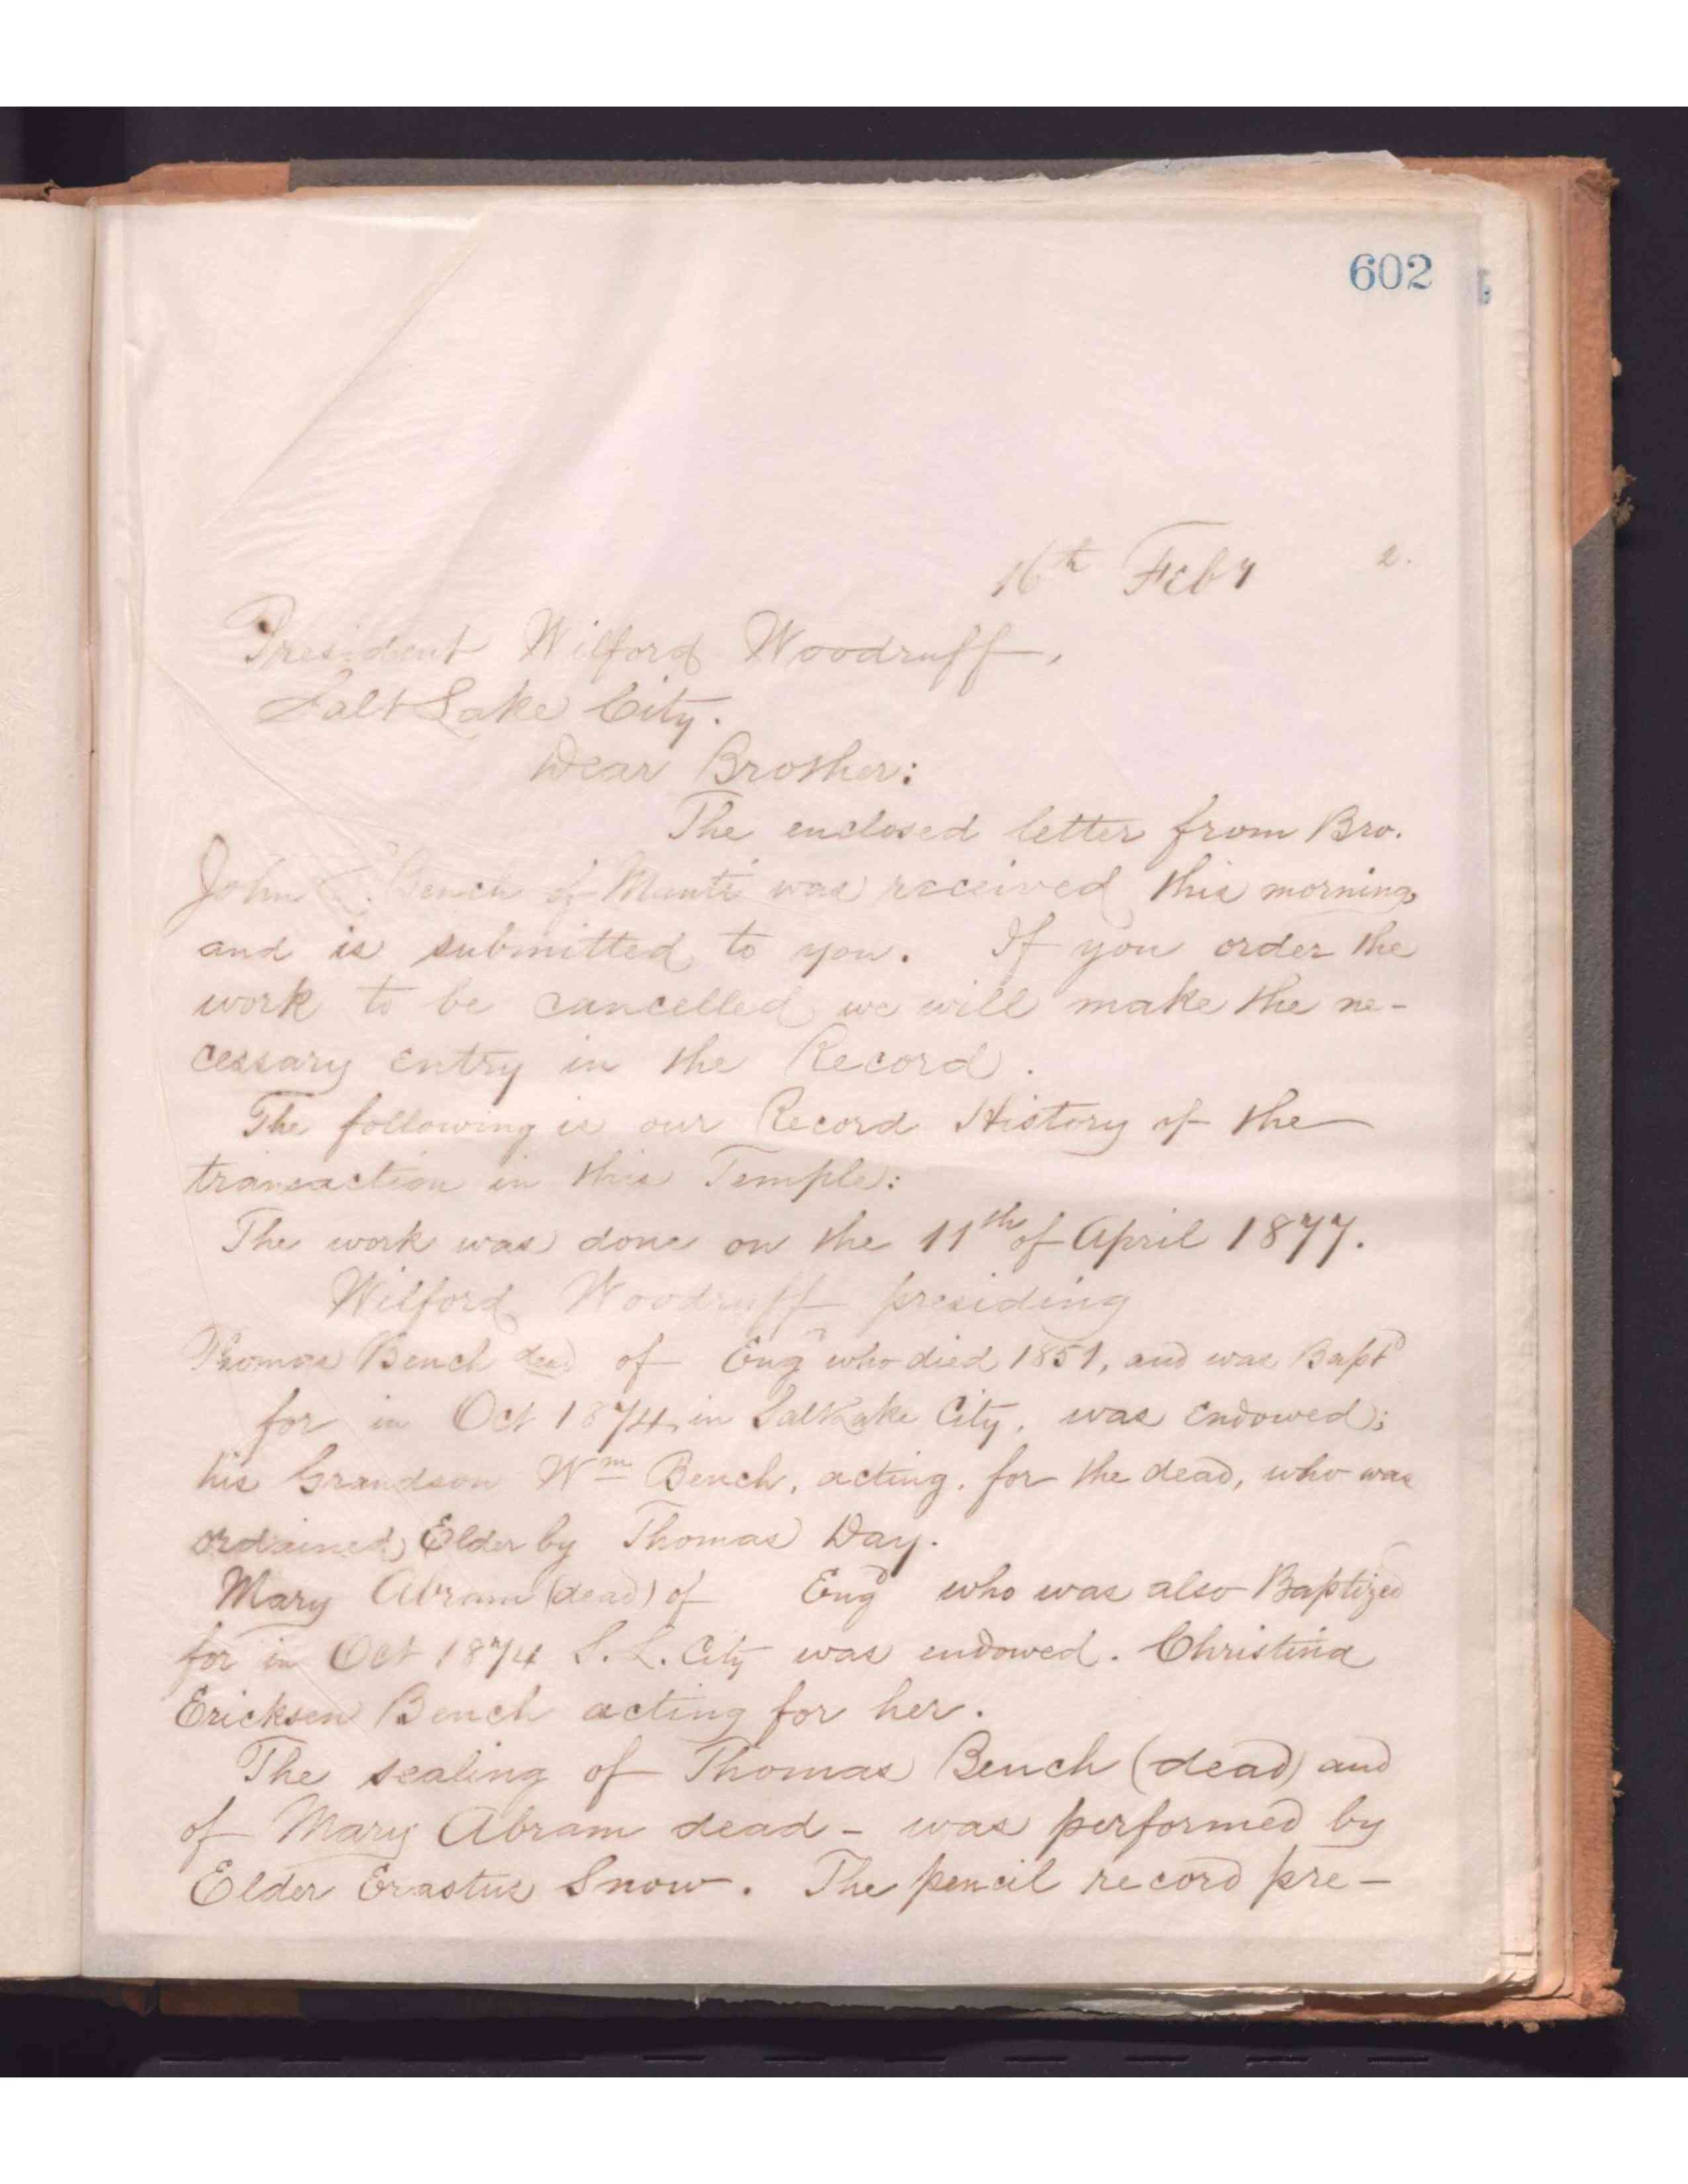 602
16th Feby 2.
President Wilford Woodruff,
Salt Lake City.
Dear Brother:
The enclosed letter from Bro.
John Bench of Manti was received this morning
and is submitted to you. If you order the
work to be cancelled we will make the ne-
cessary entry in the Record.
The following is our Record History of the
transaction in this Temple:
The work was done on the 11th of April 1877.
Wilford Woodruff presiding
Thomas Bench dead of Engd who died 1851, and was Baptd
for in Oct 1874, in Salt Lake City, was endowed;
his Grandson Wm Bench, acting, for the dead, who was
ordained Elder by Thomas Day.
Mary Abram (dead) of Engd who was also Baptized
for in Oct 1874 S. L. City was endowed. Christina
Ericksen Bench acting for her.
The sealing of Thomas Bench (dead) and
of Mary Abram dead - was performed by
Elder Erastus Snow. The pencil record pre-